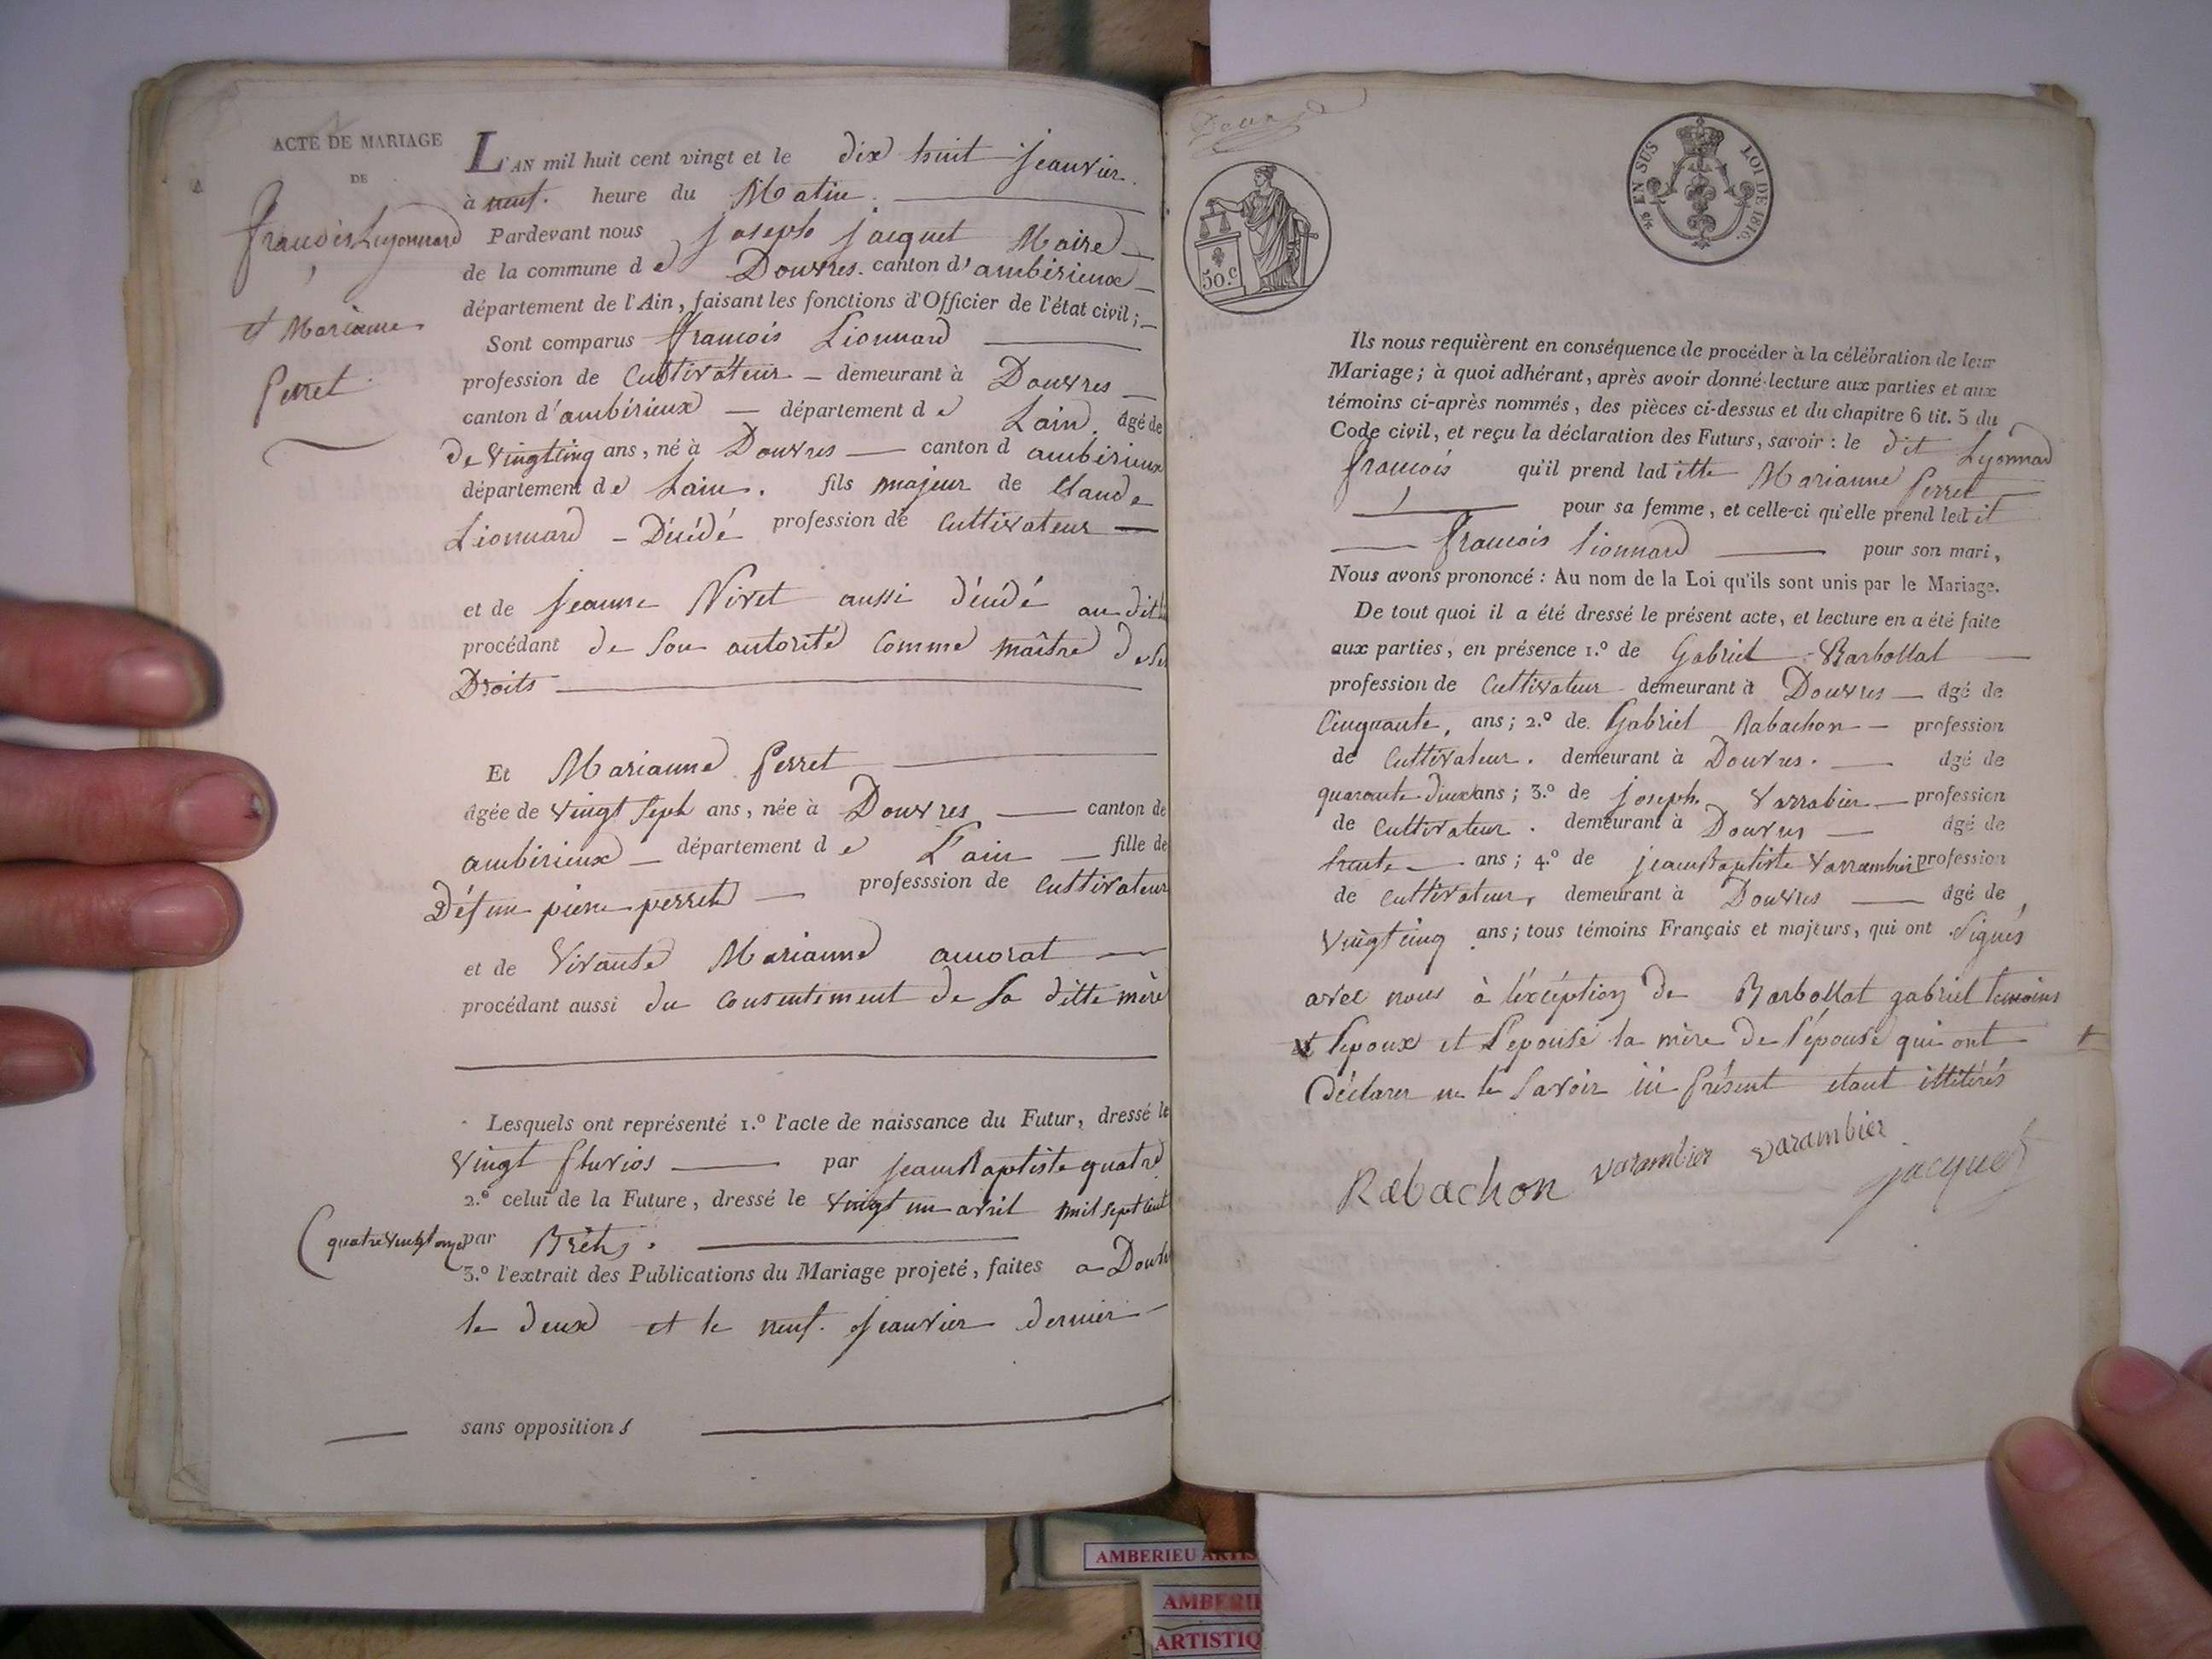 ACTE DE MARIAGE
DE
François Lyonnard
et Marianne
Perret
L'AN mil huit cent vingt et le dix huit jeanvier.
à neuf. heure du Matin.
Pardevant nous joseph jacquet Maire
de la commune de Douvres. canton d'ambérieux
département de l'Ain, faisant les fonctions d'Officier de l'état civil;
Sont comparus françois Lionnard
profession de Cultivateur demeurant à Douvres
canton d'ambérieux département de Lain. âgé de
de vingtcinq ans, né à Douvres canton d ambérieux
département de Lain. fils majeur de Claude
Lionnard - Décédé profession de Cultivateur
et de jeanne Nivet aussi décédé au dit
procédant de son autorité comme maître de ses
Droits
Et Marianne Perret
âgée de vingt sept ans, née à Douvres canton de
ambérieux département de L'ain fille de
Défun pierre perret professsion de Cultivateur
et de vivante Marianne amorat
procédant aussi du consentement de sa ditte mère
Lesquels ont représenté 1.º l'acte de naissance du Futur, dressé le
vingt pluvios par jean Baptiste quatre
2.º celui de la Future, dressé le vingt un avril mil sept cent
(quatrevingt onze par Brets.
3.º l'extrait des Publications du Mariage projeté, faites a Douvres
le deux et le neuf. jeanvier dernier
sans oppositions
Deux
50.c
EN SUS LOI DE 1816.
Ils nous requièrent en conséquence de procéder à la célébration de leur
Mariage; à quoi adhérant, après avoir donné lecture aux parties et aux
témoins ci-après nommés, des pièces ci-dessus et du chapitre 6 tit. 5 du
Code civil, et reçu la déclaration des Futurs, savoir: le dit Lyonnard
françois qu'il prend laditte Marianne Perret
pour sa femme, et celle-ci qu'elle prend ledit
françois Lionnard pour son mari,
Nous avons prononcé: Au nom de la Loi qu'ils sont unis par le Mariage.
De tout quoi il a été dressé le présent acte, et lecture en a été faite
aux parties, en présence 1.º de Gabriel Barbollat
profession de Cultivateur demeurant à Douvres âgé de
Cinquante, ans; 2.º de Gabriel Rabachon profession
de Cultivateur. demeurant à Douvres. âgé de
quarante deux ans; 3.º de joseph Varrabier profession
de Cultivateur. demeurant à Douvres âgé de
trente ans; 4.º de jean Baptiste Varrambier profession
de cultivateur, demeurant à Douvres âgé de
vingt cinq ans; tous témoins Français et majeurs, qui ont signés
avec nous à l'éxcéption de Barbollat gabriel temoins
et l'epoux et L'epouse la mère de l'épouse qui ont
Déclarer ne le savoir ici présent etant illitérés
Rabachon varambier varambier jacquet
AMBERIEU ARTIS
AMBERIE
ARTISTIQ